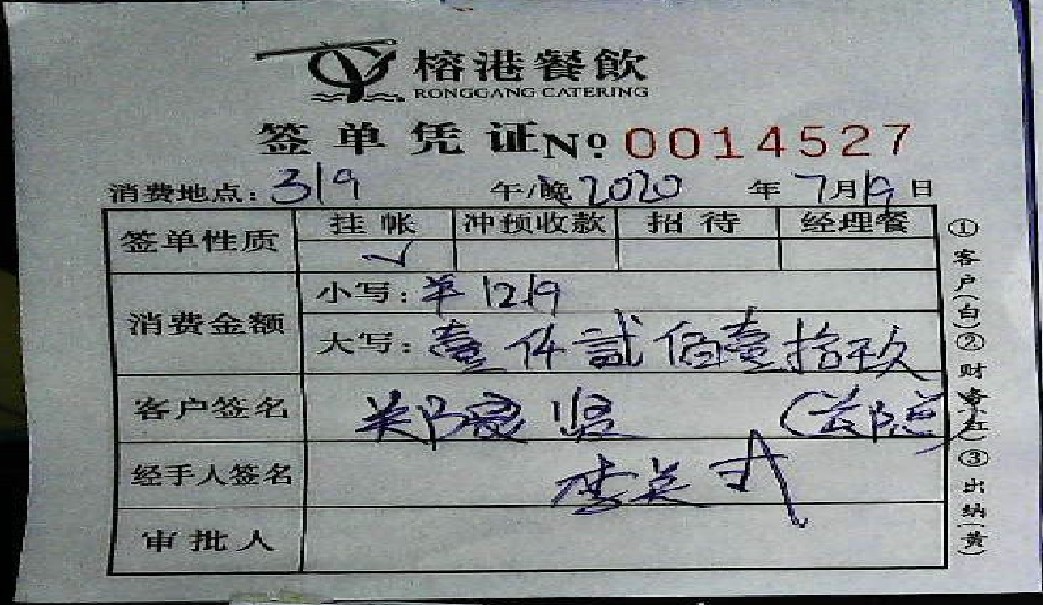 榕港餐飲
RONGGANG CATERING
签单凭证 № 0014527
消费地点：319 午/晚 2020 年 7月19日
签单性质 挂帐 冲预收款 招待 经理餐
✓
消费金额 小写：¥ 1219
大写：壹仟贰佰壹拾玖
客户签名 郑良
经手人签名 李
审批人
①客户(白)②财务(红)③出纳(黄)